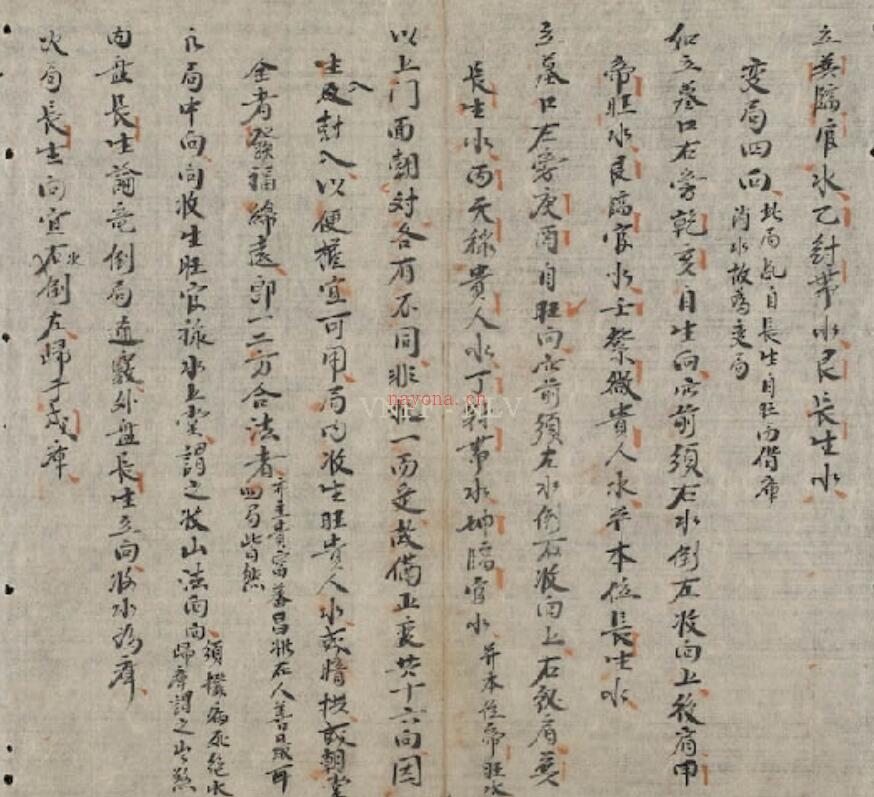 立巽臨官水乙針帶水艮長生水
变局四向此局気自長生自旺向借庫
消水故為变局
如立墓口右旁乾亥自生向定前須右水倒左收向上後肩甲
帝旺水艮臨官水壬紫微貴人水并本位長生水
立墓口左旁庚酉自旺向定前須左水倒右收向上右後肩巽
長生水丙天祿貴人水丁冠帶水坤臨官水并本位帝旺水
以上门面朝对各有不同非執一而定茲備正变共十六向因
生及封入以便擇宜可用局內收生旺貴人水或暗拱或朝堂
全者發福綿遠即一二方合法者亦主貴富蕃昌
四局皆然
水局中向向收生旺官祿水上堂謂之收山法向向須撥病死絕水
歸庫謂之出煞
內盤長生論竜倒局通竅外盤長生立向收水為庫
火局長生向宜右水倒左歸于戌庫
nayona.cn
VNEPT NLV